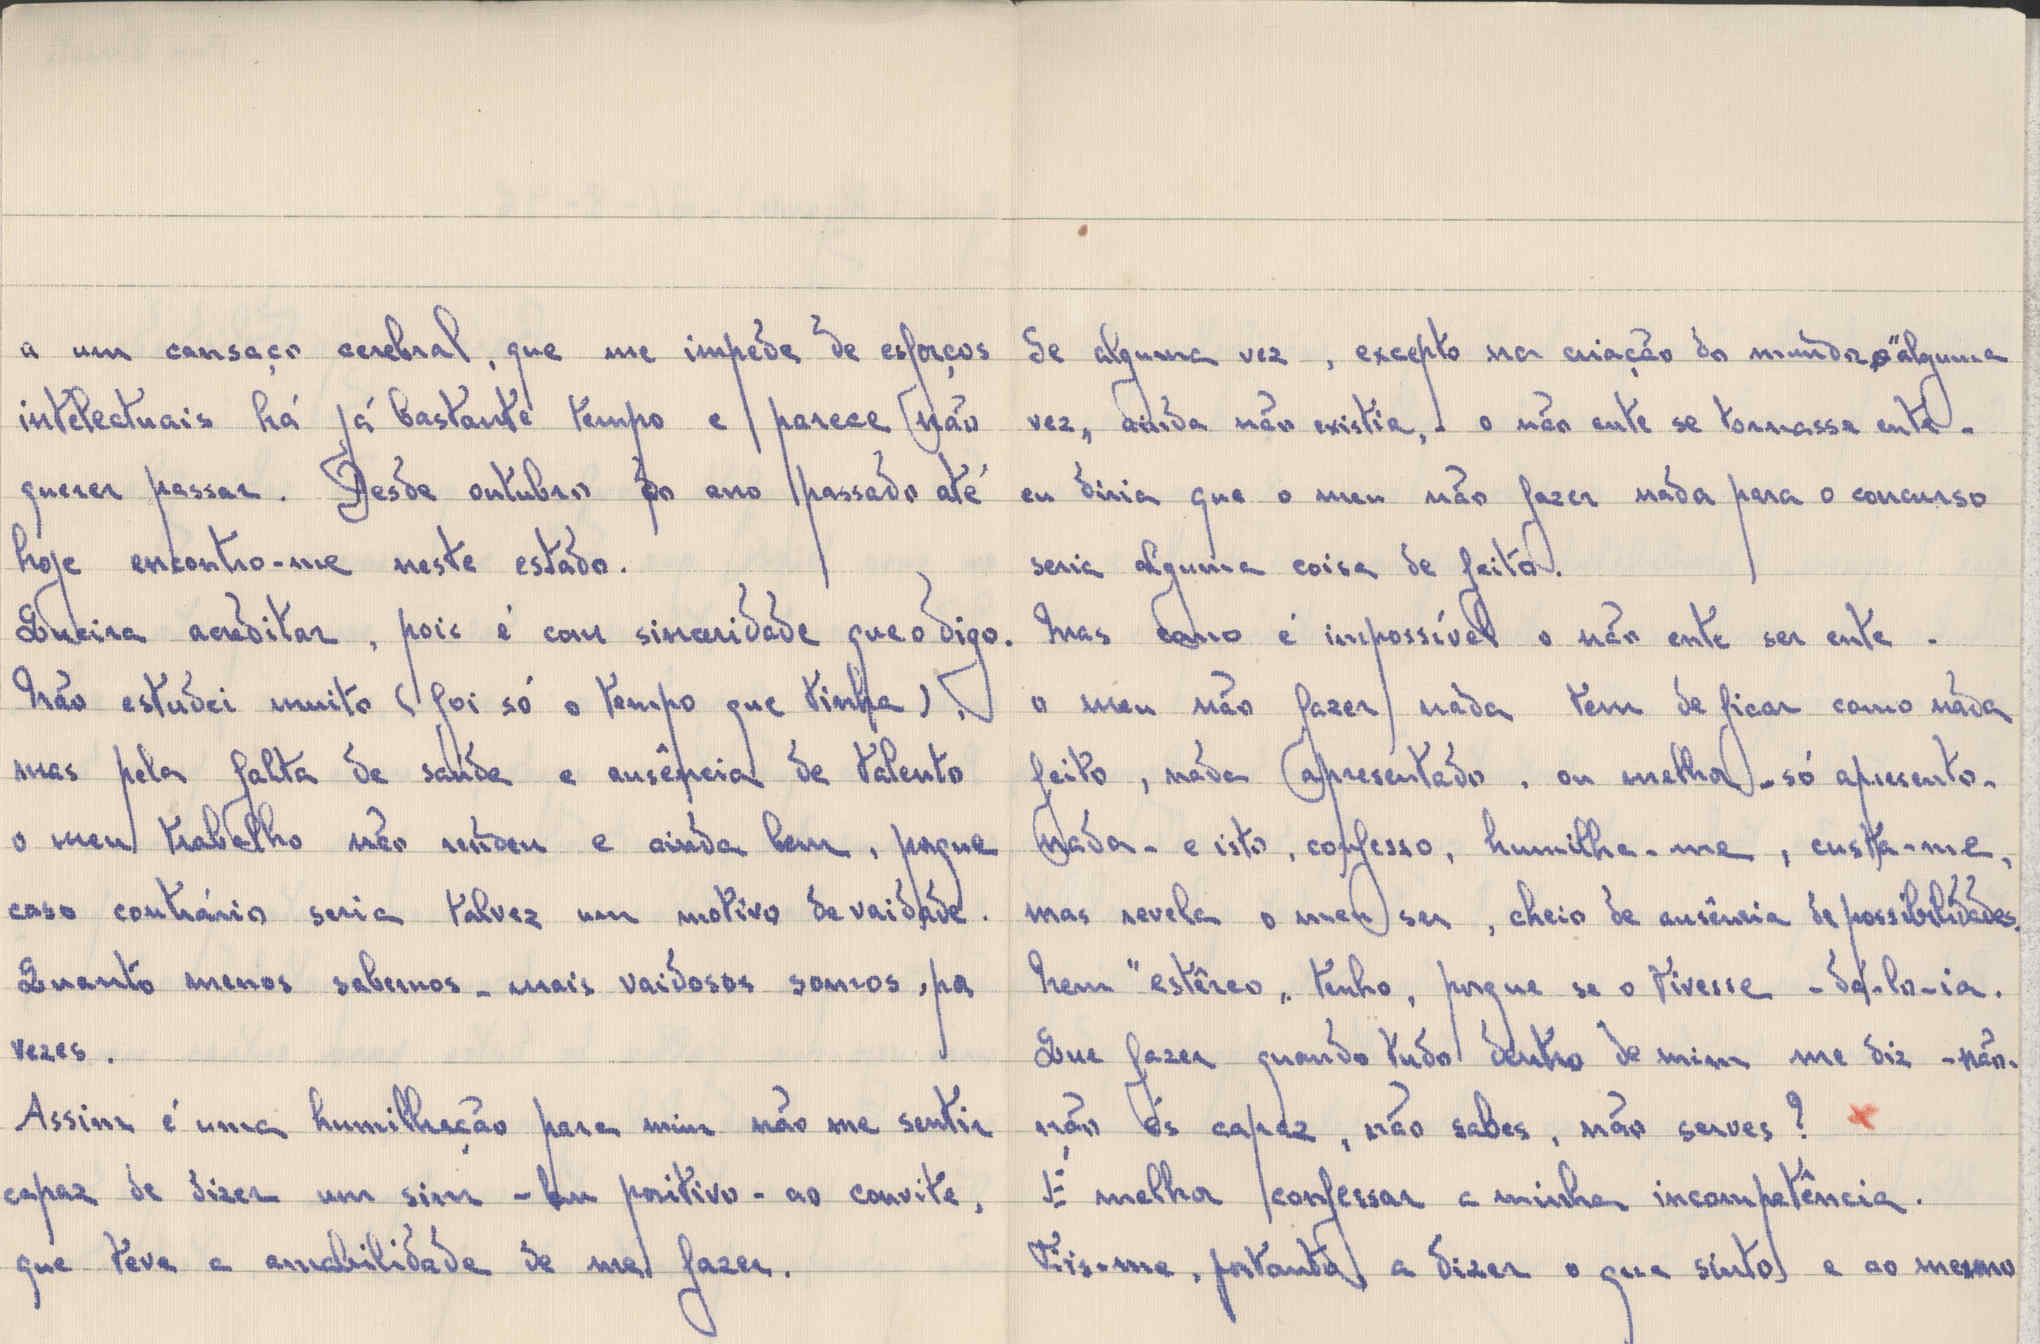 a um cansaço cerebral, que me impede de esforços
intelectuais há já bastante tempo e parece não
querer passar. Desde outubro do ano passado até
hoje encontro-me neste estado.
Queira acreditar, pois é com sinceridade que o digo.
Não estudei muito (foi só o tempo que tinha),
mas pela falta de saúde e ausência de talento
o meu trabalho não rendeu e ainda bem, porque
caso contrário seria talvez um motivo de vaidade.
Quanto menos sabemos - mais vaidosos somos, por
vezes.
Assim é uma humilhação para mim não me sentir
capaz de dizer um sim - bem positivo - ao convite,
que teve a amabilidade de me fazer.
Se alguma vez, excepto na criação do mundo, "alguma
vez„ ainda não existia, - o não ente se tornasse ente -
eu diria que o meu não fazer nada para o concurso
seria alguma coisa de feito.
Mas como é impossível o não ente ser ente -
o meu não fazer nada tem de ficar como nada
feito, nada apresentado, ou melhor - só apresento -
nada - e isto, confesso, humilha-me, custa-me,
mas revela o meu ser, cheio de ausência de possibilidades.
Nem "estêreo„ tenho, porque se o tivesse - dá-lo-ia.
Que fazer quando tudo dentro de mim me diz - não -
não és capaz, não sabes, não serves?
É melhor confessar a minha incompetência.
Eis-me, portanto, a dizer o que sinto e ao mesmo